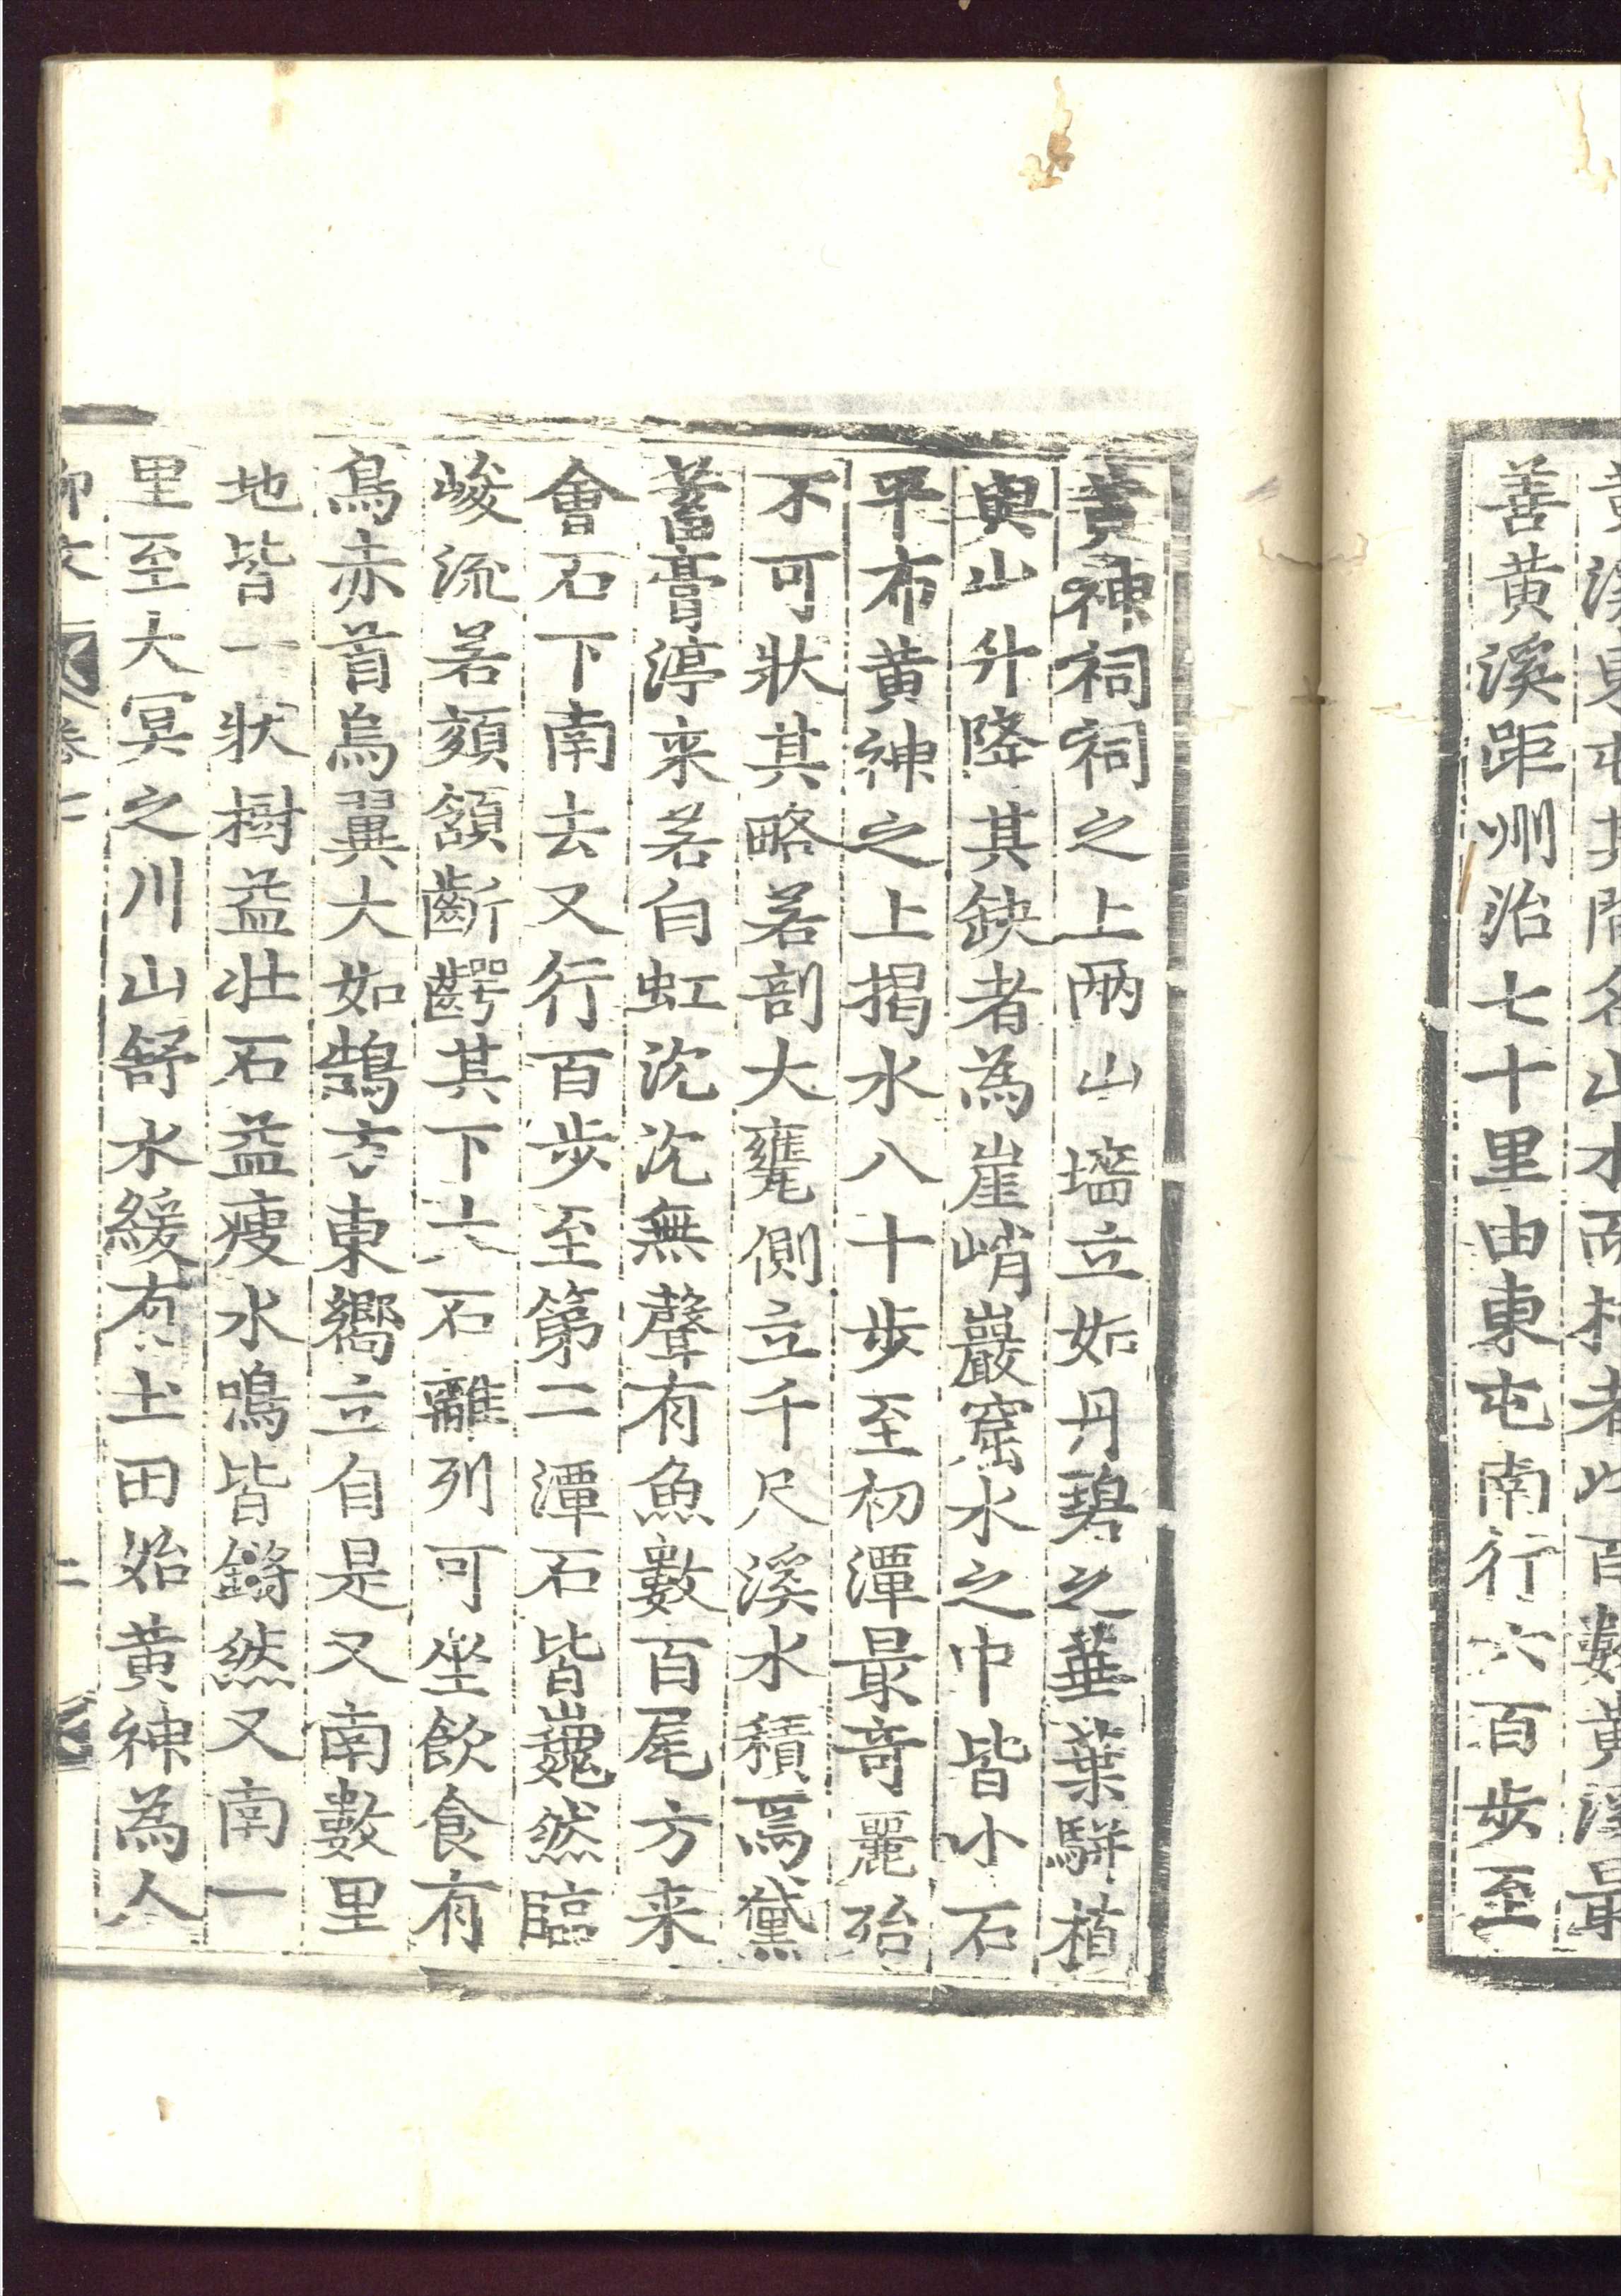 善黄溪距州治七十里由東屯南行六百步至
黄神祠祠之上兩山墻立如丹碧之華葉駢植
與山升降其缺者為崖峭巖窟水之中皆小石
平布黄神之上揭水八十步至初潭最奇麗殆
不可狀其略若剖大甕側立千尺溪水積焉黛
蓄膏渟来若白虹沉沉無聲有魚數百尾方来
會石下南去又行百步至第二潭石皆巍然臨
峻流若頦頷齗齶其下大石離列可坐飲食有
鳥赤首烏翼大如鵠方東嚮立自是又南數里
地皆一狀樹益壯石益瘦水鳴皆鏘然又南一
里至大冥之川山舒水緩有土田始黄神為人
柳文 卷二 二